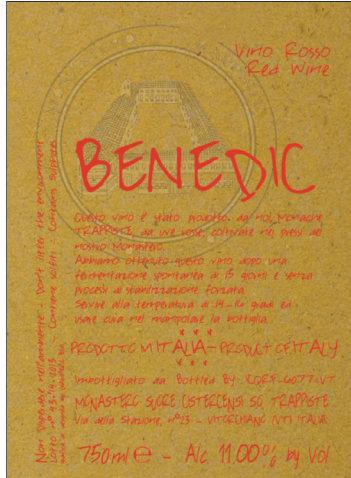 Vino Rosso
Red Wine
BENEDIC
Questo vino è stato prodotto da noi, Monache
TRAPPISTE, da uve rosse, coltivate nei pressi del
nostro Monastero.
Abbiamo ottenuto questo vino dopo una
fermentazione spontanea di 15 giorni e senza
processi di stabilizzazione forzata.
Servire alla temperatura di gradi ed
usare cura nel manipolare la bottiglia.
PRODOTTO IN ITALIA - PRODUCT OF ITALY
Imbottigliato da Bottled By ICQRF VT
MONASTERO SUORE CISTERCENSI S.O. TRAPPISTE
Via della Stazione, n°23 - VITORCHIANO (VT) ITALIA
750ml e - Alc 11.00% by Vol
Non disperdere nell'ambiente - Don't litter the environment
Lotto n° - Contiene solfiti - Contains sulfites